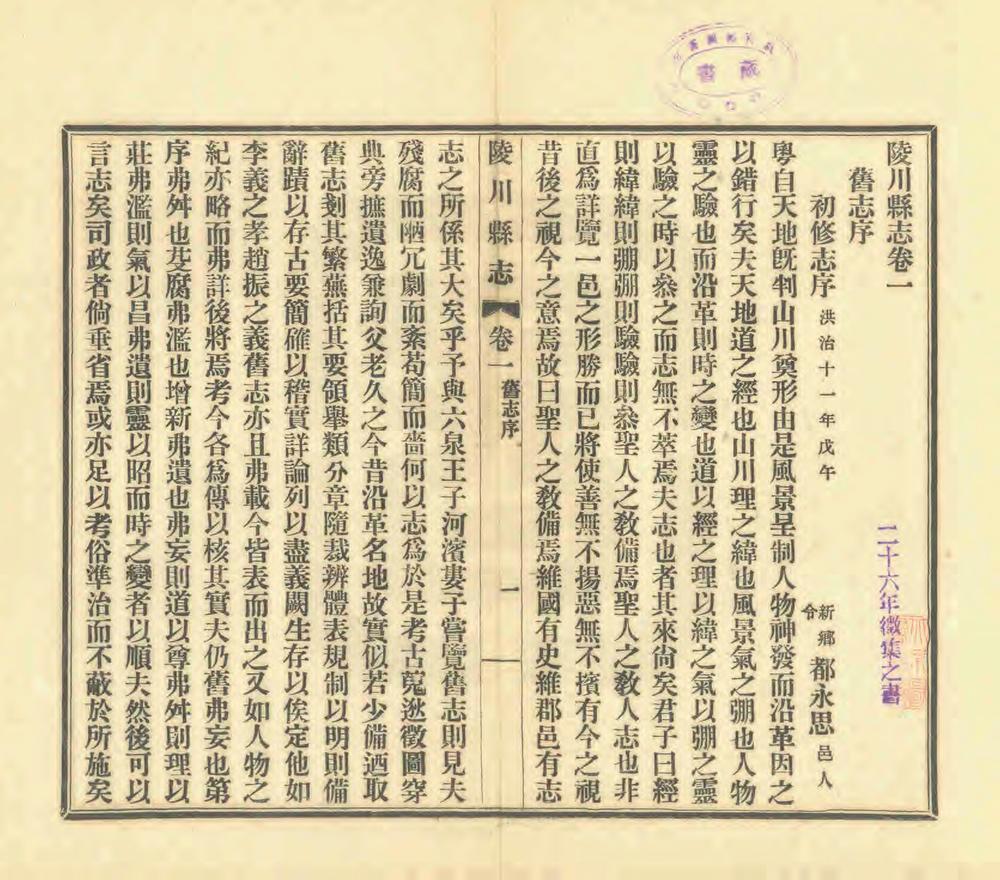 陵川縣志卷一
舊志序
初修志序 洪治十一年戊午 新鄉令 都永思 邑人
粵自天地旣判山川奠形由是風景呈制人物神發而沿革因之
以錯行矣夫天地道之經也山川理之緯也風景氣之弸也人物
靈之驗也而沿革則時之變也道以經之理以緯之氣以弸之靈
以驗之時以叅之而志無不萃焉夫志也者其來尙矣君子曰經
則緯緯則弸弸則驗驗則叅聖人之敎備焉聖人之敎人志也非
直爲詳覽一邑之形勝而已將使善無不揚惡無不擯有今之視
昔後之視今之意焉故曰聖人之敎備焉維國有史維郡邑有志
陵川縣志 卷一 舊志序 一
志之所係其大矣乎予與六泉王子河濱婁子嘗覽舊志則見夫
殘腐而陋冗劇而紊苟簡而嗇何以志爲於是考古蒐逖徵圖穿
典旁摭遺逸兼詢父老久之今昔沿革名地故實似若少備迺取
舊志剗其繁蕪括其要領舉類分章隨裁辨體表規制以明則備
辭蹟以存古要簡確以稽實詳論列以盡義闕生存以俟定他如
李義之孝趙振之義舊志亦且弗載今皆表而出之又如人物之
紀亦略而弗詳後將焉考今各爲傳以核其實夫仍舊弗妄也第
序弗舛也芟腐弗濫也增新弗遺也弗妄則道以尊弗舛則理以
莊弗濫則氣以昌弗遺則靈以昭而時之變者以順夫然後可以
言志矣司政者倘垂省焉或亦足以考俗準治而不蔽於所施矣
二十六年徵集之書
藏書